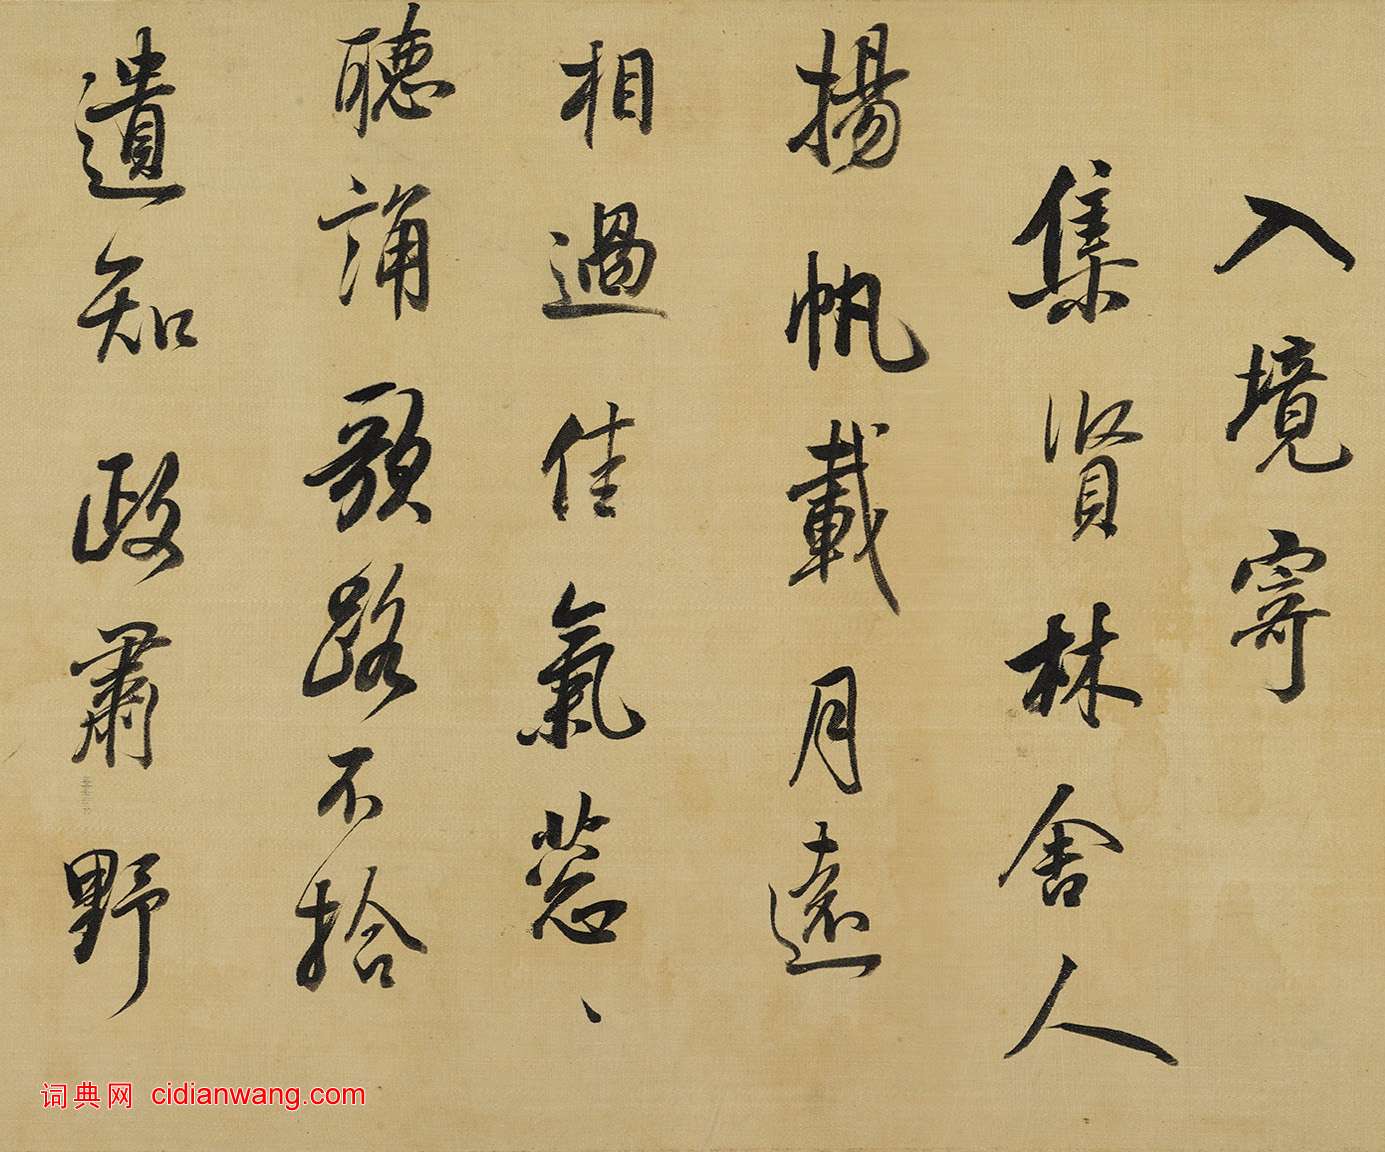 入境寄
集賢林舍人
揚帆載月遠
相過佳氣葱〻
聽誦歌路不拾
遺知政肅野
词典网 cidianwang.com